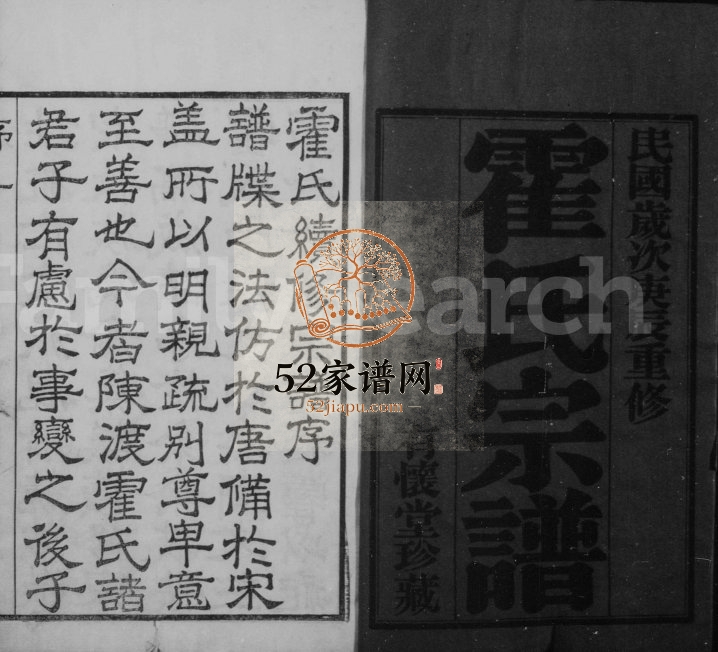 民國歲次庚辰重修
霍氏宗譜
有懷堂珍藏
霍氏續修宗譜序
譜牒之法仿於唐備於宋
盖所以明親疏别尊卑意
至善也今者陳渡霍氏諸
君子有慮於事變之後子
FamilySearch
52家谱网
52jiapu.com